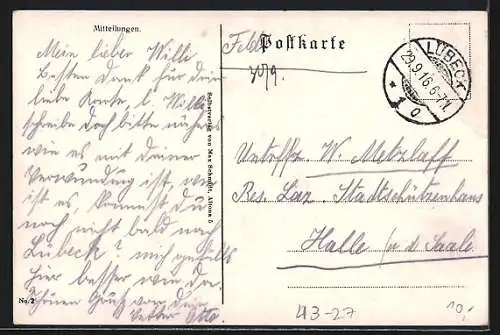 Mitteilungen.
Feld Postkarte
Mein lieber Willi
Besten Dank für deine
liebe Karte, l. Willi
schreibe doch bitte näheres
wie es mit deiner
Verwundung ist, wo
ist es, kommst Du
noch nicht bald nach
Lübeck? mir gefällts
hier besser wie da.
Schönen Gruß von dein
Vetter Otto.
No. 2
Selbstverlag von Max Schmidt, Altona 5
LÜBECK
29.9.16. 6-7 N.
* 1 o
Unteroffz. W. Metzlaff
Res. Laz. Stadtschützenhaus
Halle a d Saale
43-27
10,-